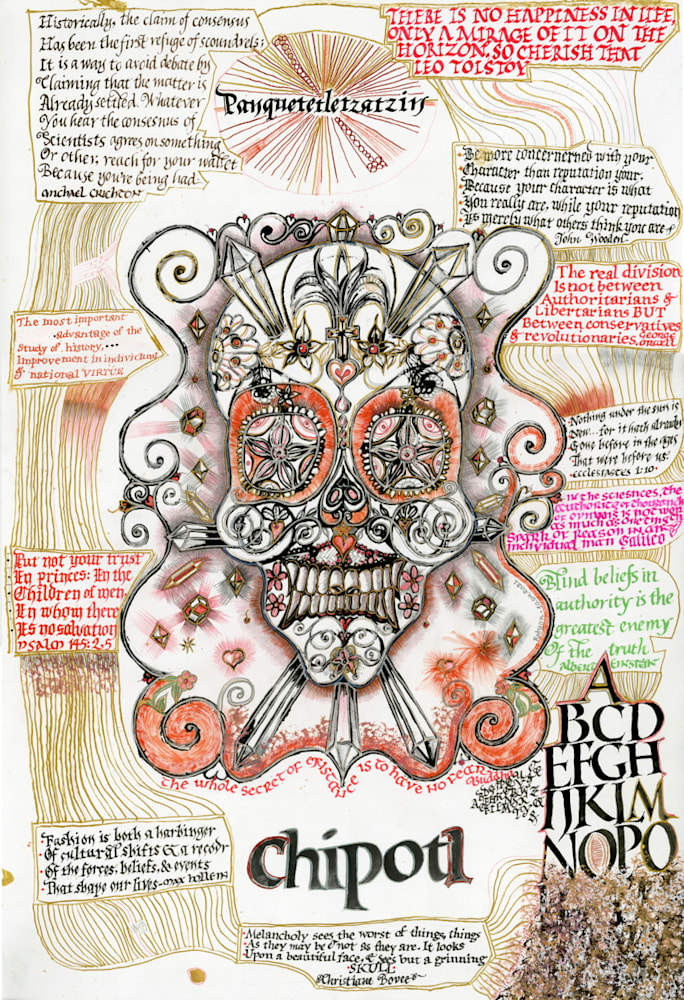 Historically, the claim of consensus
Has been the first refuge of scoundrels;
It is a way to avoid debate by
Claiming that the matter is
Already settled. Whatever
You hear the consesnus of
Scientists agrees on something
Or other, reach for your wallet
Because you're being had.
Michael Crichton
THERE IS NO HAPPINESS IN LIFE,
ONLY A MIRAGE OF IT ON THE
HORIZON, SO CHERISH THAT
LEO TOLSTOY
Panquetetletzatzin
Be more concernerned with your
Character than reputation your.
Because your character is what
You really are, while your reputation
Is merely what others think you are
John Wooden
The real division
Is not between
Authoritarians &
Libertarians BUT
Between conservatives
& revolutionaries. George
Orwell
The most important
Advantage of the
Study of history, ...
Improvement in individual
& national VIRTUE
Nothing under the sun is
New... for it hath already
Gone before in the ages
That were before us:
Ecclesiastes 1:10
In the sciences, the
authority of thousands
of opinions is not worth
as much as one tiny
Spark of Reason in an
individual man Galileo
Put not your trust
In princes: In the
Children of men,
In whom there
Is no salvation
Psalm 145:2,5
Blind beliefs in
authority is the
greatest enemy
Of the truth
ALBERT EINSTEIN
A
BCD
EFGH
IJKLM
NOPO
The whole secret of existance is to have no fear Buddha
chipotl
Fashion is both a harbinger
Of cultural shifts & a recodr
Of the forces, beliefs, & events
That shape our lives - max hollein
Melancholy sees the worst of things, things
As they may be & not as they are. It looks
Upon a beautiful face, & sees but a grinning
SKULL
Christiane Bovee